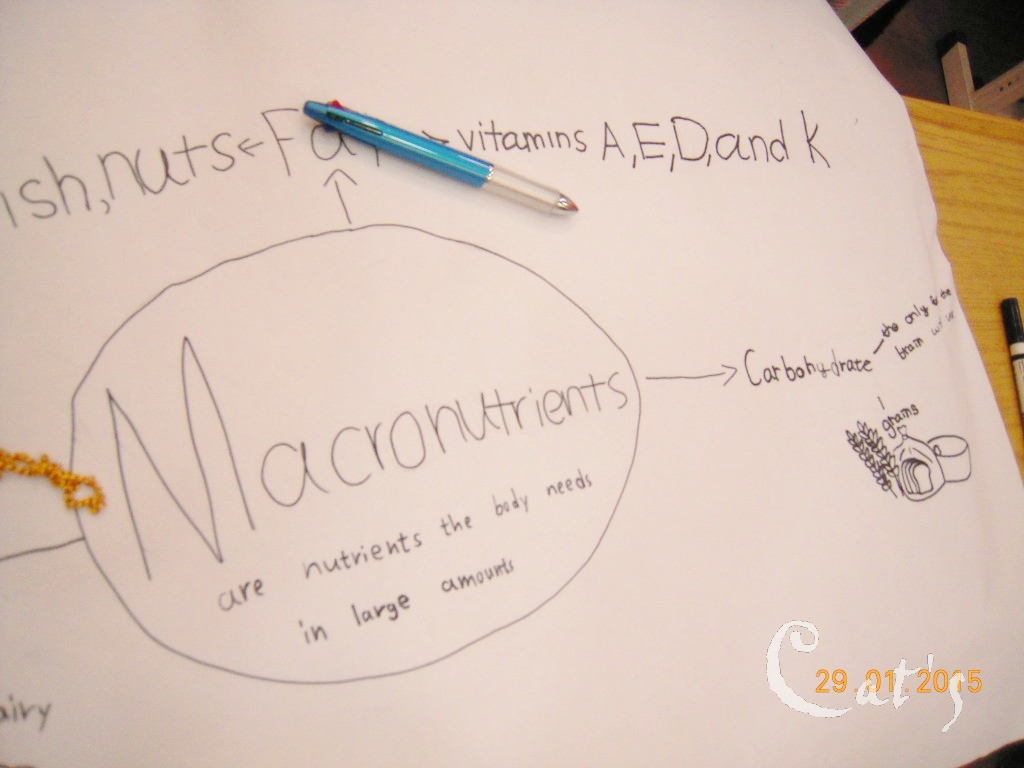 nuts ← Fat → vitamins A,E,D,and K
Macronutrients
are nutrients the body needs
in large amounts
→ Carbohydrate
the only
brain
grams
Cat's
29.01.2015